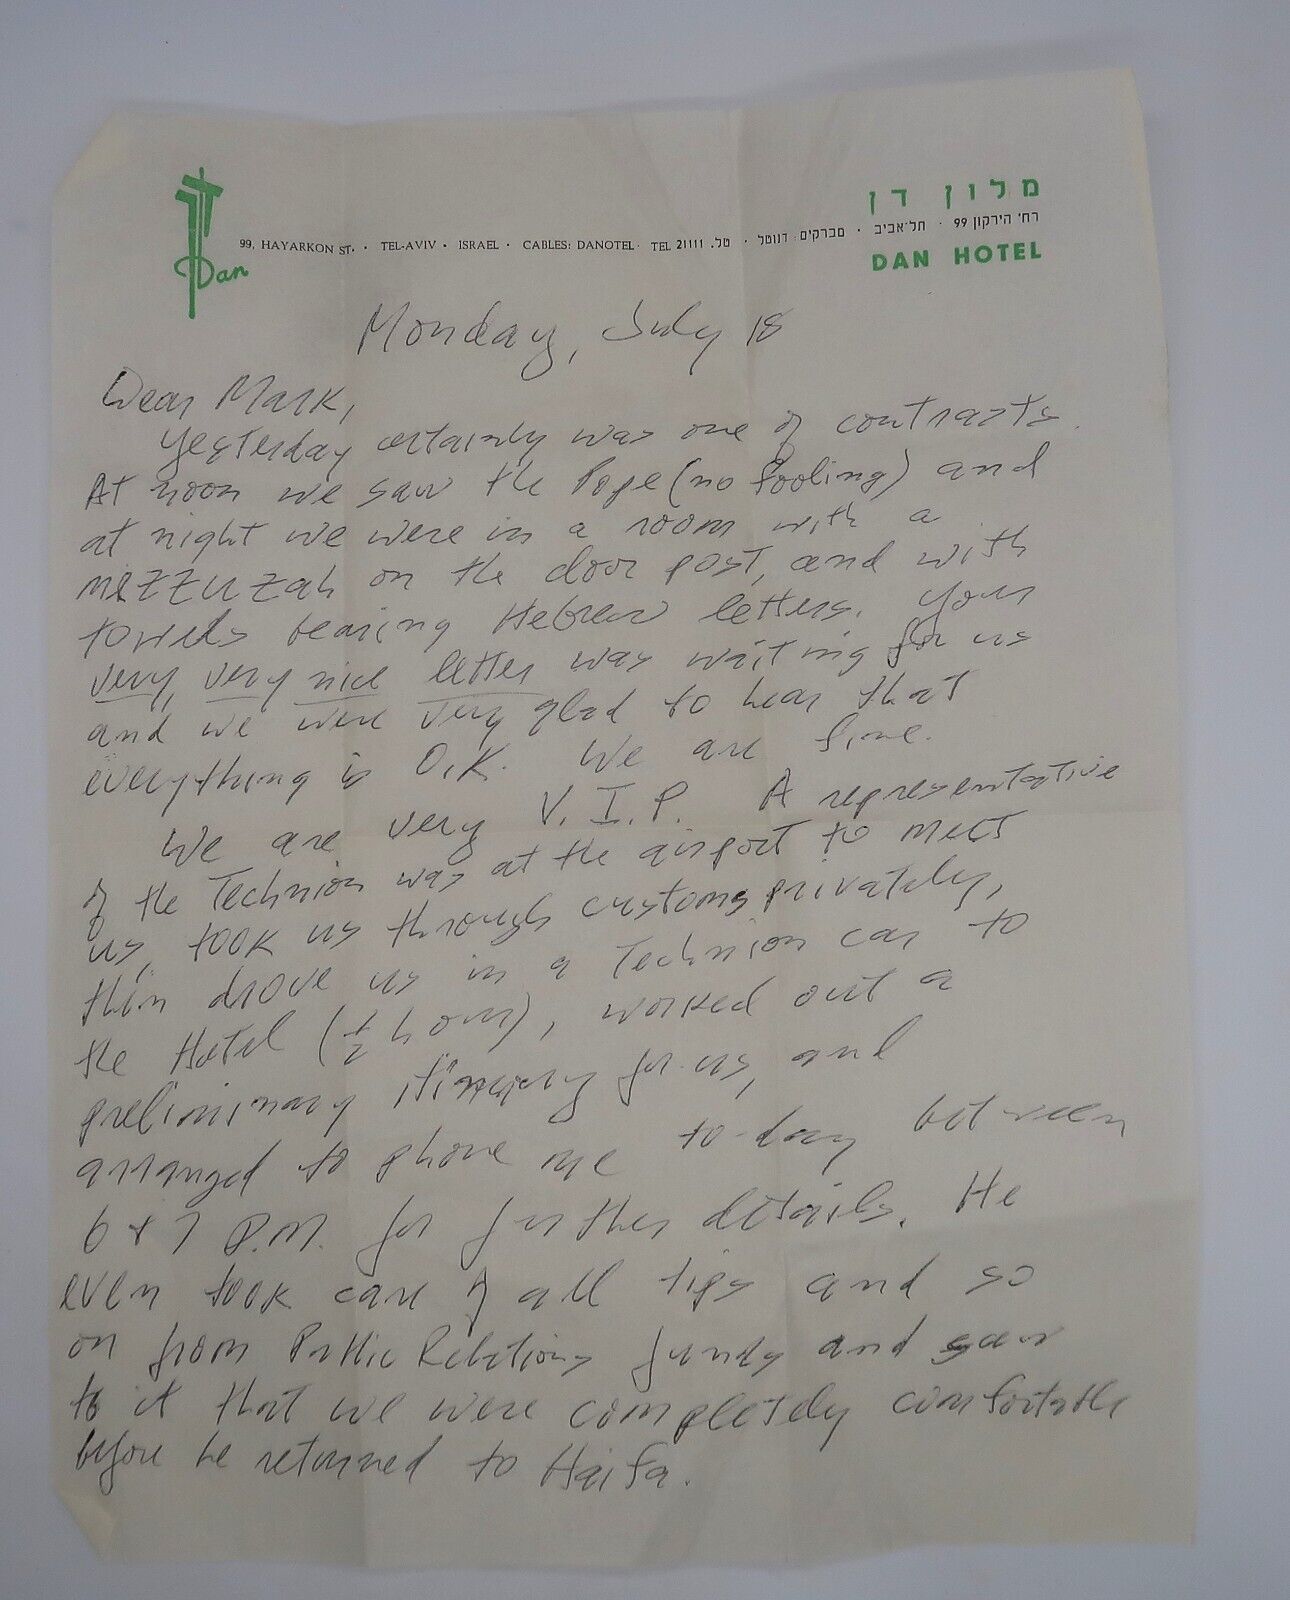 Dan
99, HAYARKON ST. · TEL-AVIV · ISRAEL · CABLES: DANOTEL · TEL 21111 .טל · מברקים: דנוטל · תל־אביב · רח' הירקון 99
מלון דן
DAN HOTEL
Monday, July 18
Dear Mark,
Yesterday certainly was one of contrasts.
At noon we saw the Pope (no fooling) and
at night we were in a room with a
mezzuzah on the door post, and with
towels bearing Hebrew letters. Your
very, very nice letter was waiting for us
and we were very glad to hear that
everything is O.K. We are fine.
We are very V.I.P. A representative
of the Technion was at the airport to meet
us, took us through customs privately,
then drove us in a Technion car to
the Hotel (½ hour), worked out a
preliminary itinerary for us, and
arranged to phone me to-day between
6 + 7 P.M. for further details. He
even took care of all tips and so
on from Public Relations funds and saw
to it that we were completely comfortable
before he returned to Haifa.